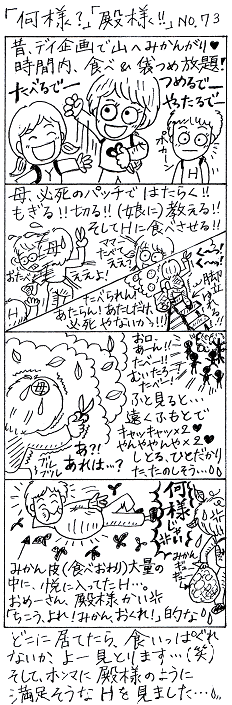 「何様？」「殿様!!」NO.73
昔、デイ企画で山へみかんがり♥
時間内、食べ&袋つめ放題!
たべるでー
つめるでー
やったるでー
ポカー
母、必死のパッチではたらく!!
もぎる!!切る!!(娘に)教える!!
そしてHに食べさせる!!
母
ママー
たべてー
ええよ!
おたべ
H
くぅー!
脚立
たべられへん!
あたらん!あたしだけ、
必死やないかっ!!
お口、
あーん!!
たべー!!
むいたろー
たべー!
ふと見ると…
遠くふもとで
キャッキャッ×2♥
やんややんや×2♥
しとる、ひとだかり
たたのしそう…
母
あ?!
あれは…?
ブルブル
何様じゃい
みかん
H
みかん皮(食べおわり)大量の
中に、悦に入ってたH…。
おめーさん、殿様かい
「ちこう、よれ!みかん、おくれ!」的な
どこに居てたら、食いっぱぐれ
ないか、よー見とります…(笑)
そして、ホンマに殿様のように
満足そうなHを見ました…。